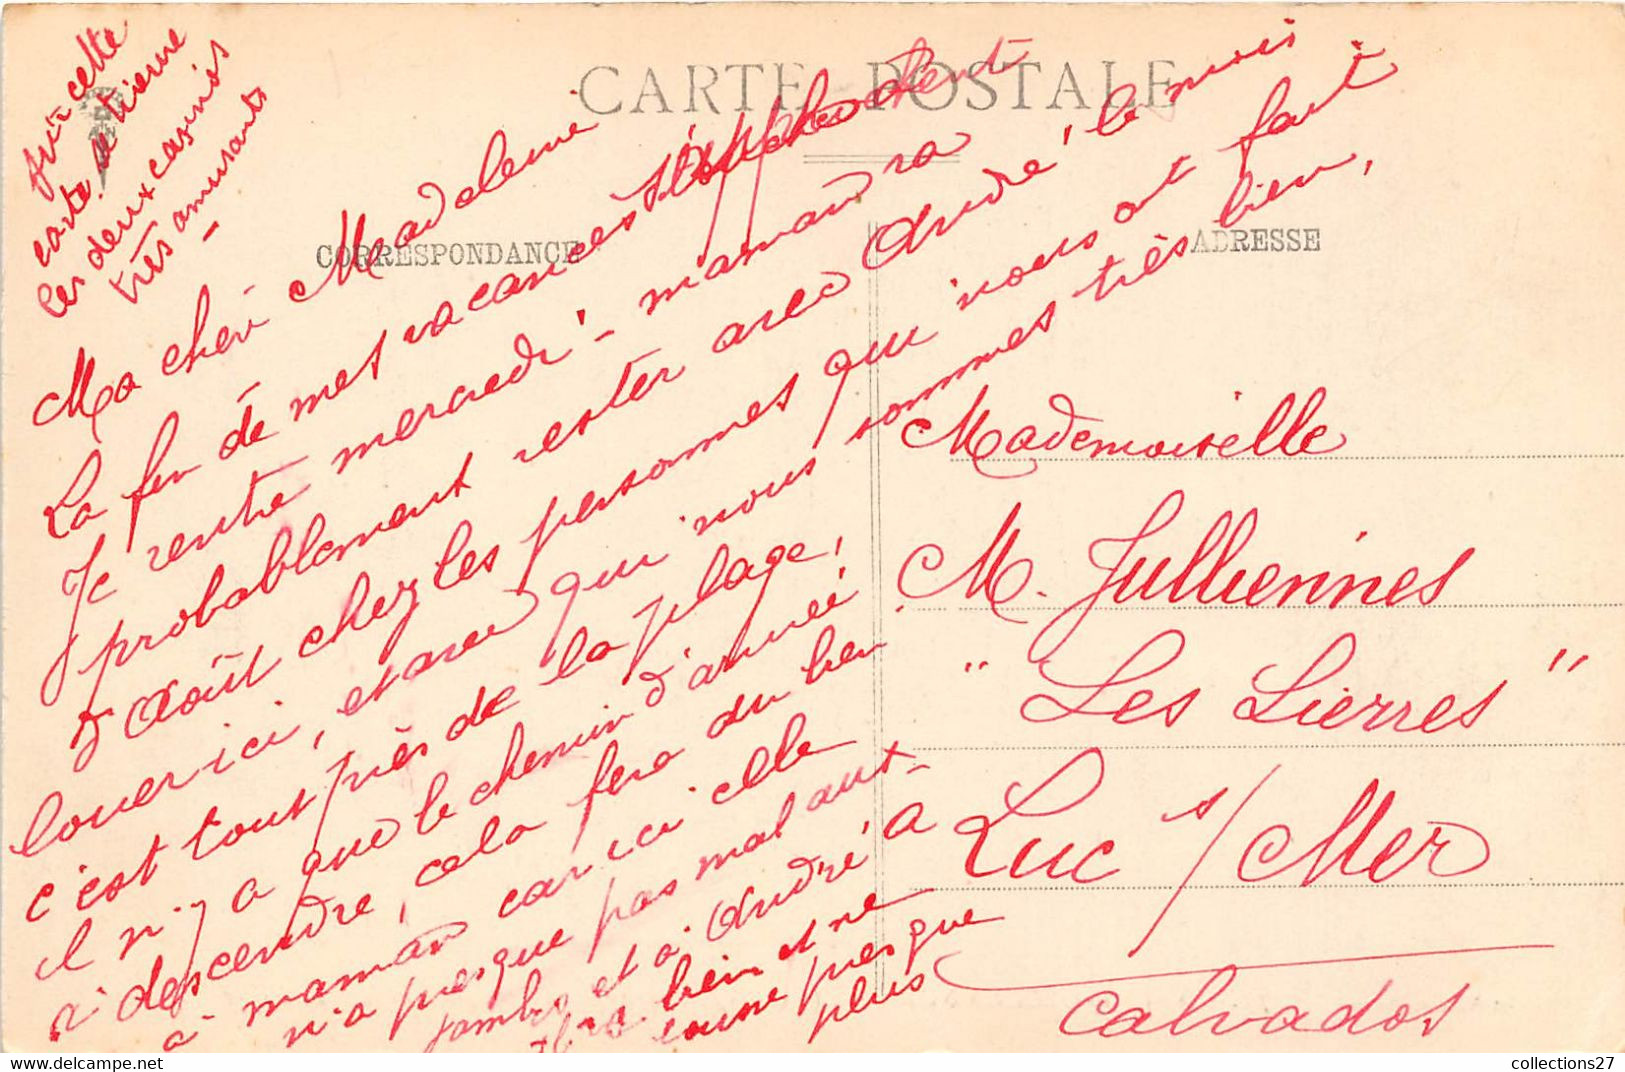 CARTE POSTALE
CORRESPONDANCE
ADRESSE
Avec cette
carte
les deux casinos
très amusants
Ma chère Madeleine
La fin de mes vacances s'approchent
Je rentre mercredi - maman va
probablement rester avec André le mois
d'Août chez les personnes qui nous ont fait
louer ici, et avec qui nous sommes très bien,
c'est tout près de la plage,
il n'y a que le chemin d'arrivée
à descendre, cela fera du bien
à maman car ici elle
n'a presque pas mal aux
jambes et à André, a
bien et ne
tousse presque
plus
Mademoiselle
M. Julliennes
"Les Lierres"
Luc s/Mer
Calvados
collections27